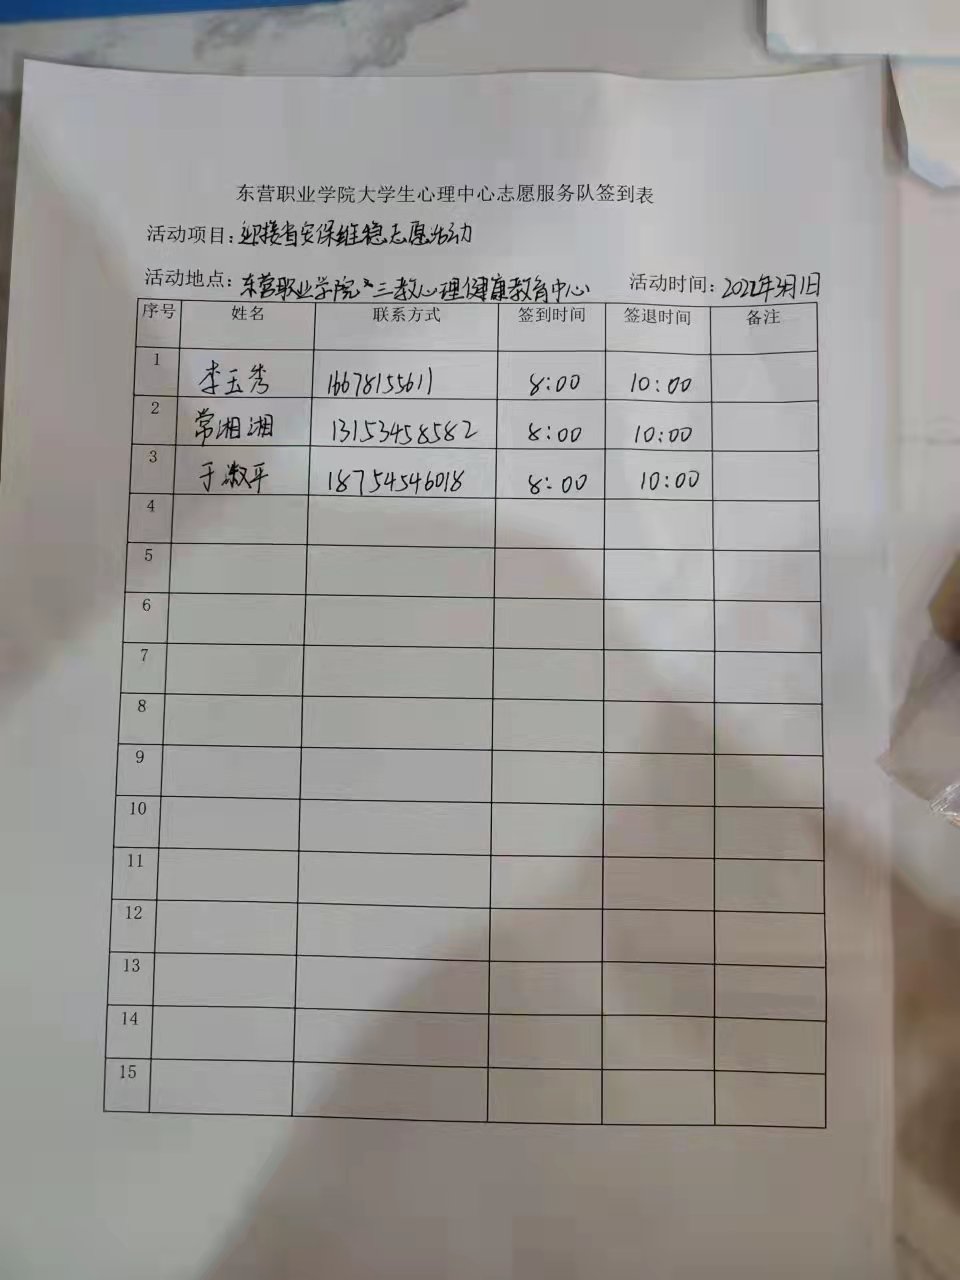 东营职业学院大学生心理中心志愿服务队签到表
活动项目：迎接省安保维稳志愿活动
活动地点：东营职业学院 三教心理健康教育中心 活动时间：2022年3月1日
序号 姓名 联系方式 签到时间 签退时间 备注
1 李玉秀 16678155611 8:00 10:00
2 常湘湘 13153458582 8:00 10:00
3 于淑平 18754546018 8:00 10:00
4
5
6
7
8
9
10
11
12
13
14
15